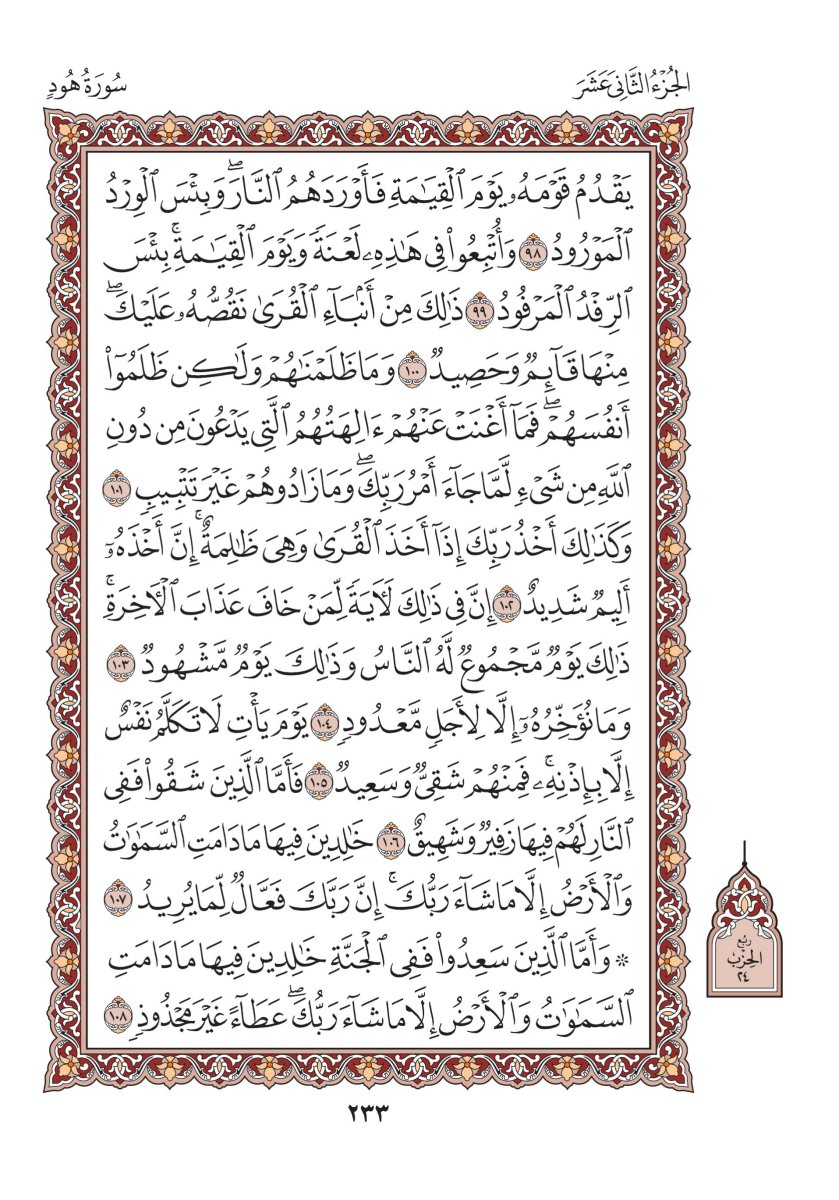 الجُزْءُ الثَّانِي عَشَرَ
سُورَةُ هُودٍ
يَقۡدُمُ قَوۡمَهُۥ يَوۡمَ ٱلۡقِيَٰمَةِ فَأَوۡرَدَهُمُ ٱلنَّارَۖ وَبِئۡسَ ٱلۡوِرۡدُ
ٱلۡمَوۡرُودُ ٩٨ وَأُتۡبِعُواْ فِي هَٰذِهِۦ لَعۡنَةٗ وَيَوۡمَ ٱلۡقِيَٰمَةِۚ بِئۡسَ
ٱلرِّفۡدُ ٱلۡمَرۡفُودُ ٩٩ ذَٰلِكَ مِنۡ أَنۢبَآءِ ٱلۡقُرَىٰ نَقُصُّهُۥ عَلَيۡكَۖ
مِنۡهَا قَآئِمٞ وَحَصِيدٞ ١٠٠ وَمَا ظَلَمۡنَٰهُمۡ وَلَٰكِن ظَلَمُوٓاْ
أَنفُسَهُمۡۖ فَمَآ أَغۡنَتۡ عَنۡهُمۡ ءَالِهَتُهُمُ ٱلَّتِي يَدۡعُونَ مِن دُونِ
ٱللَّهِ مِن شَيۡءٖ لَّمَّا جَآءَ أَمۡرُ رَبِّكَۖ وَمَا زَادُوهُمۡ غَيۡرَ تَتۡبِيبٖ ١٠١
وَكَذَٰلِكَ أَخۡذُ رَبِّكَ إِذَآ أَخَذَ ٱلۡقُرَىٰ وَهِيَ ظَٰلِمَةٌۚ إِنَّ أَخۡذَهُۥٓ
أَلِيمٞ شَدِيدٌ ١٠٢ إِنَّ فِي ذَٰلِكَ لَأٓيَةٗ لِّمَنۡ خَافَ عَذَابَ ٱلۡأٓخِرَةِۚ
ذَٰلِكَ يَوۡمٞ مَّجۡمُوعٞ لَّهُ ٱلنَّاسُ وَذَٰلِكَ يَوۡمٞ مَّشۡهُودٞ ١٠٣
وَمَا نُؤَخِّرُهُۥٓ إِلَّا لِأَجَلٖ مَّعۡدُودٖ ١٠٤ يَوۡمَ يَأۡتِ لَا تَكَلَّمُ نَفۡسٌ
إِلَّا بِإِذۡنِهِۦۚ فَمِنۡهُمۡ شَقِيّٞ وَسَعِيدٞ ١٠٥ فَأَمَّا ٱلَّذِينَ شَقُواْ فَفِي
ٱلنَّارِ لَهُمۡ فِيهَا زَفِيرٞ وَشَهِيقٌ ١٠٦ خَٰلِدِينَ فِيهَا مَا دَامَتِ ٱلسَّمَٰوَٰتُ
وَٱلۡأَرۡضُ إِلَّا مَا شَآءَ رَبُّكَۚ إِنَّ رَبَّكَ فَعَّالٞ لِّمَا يُرِيدُ ١٠٧
۞ وَأَمَّا ٱلَّذِينَ سُعِدُواْ فَفِي ٱلۡجَنَّةِ خَٰلِدِينَ فِيهَا مَا دَامَتِ
ٱلسَّمَٰوَٰتُ وَٱلۡأَرۡضُ إِلَّا مَا شَآءَ رَبُّكَۖ عَطَآءً غَيۡرَ مَجۡذُوذٖ ١٠٨
رُبْعُ
الحِزْبِ
٢٤
٢٣٣